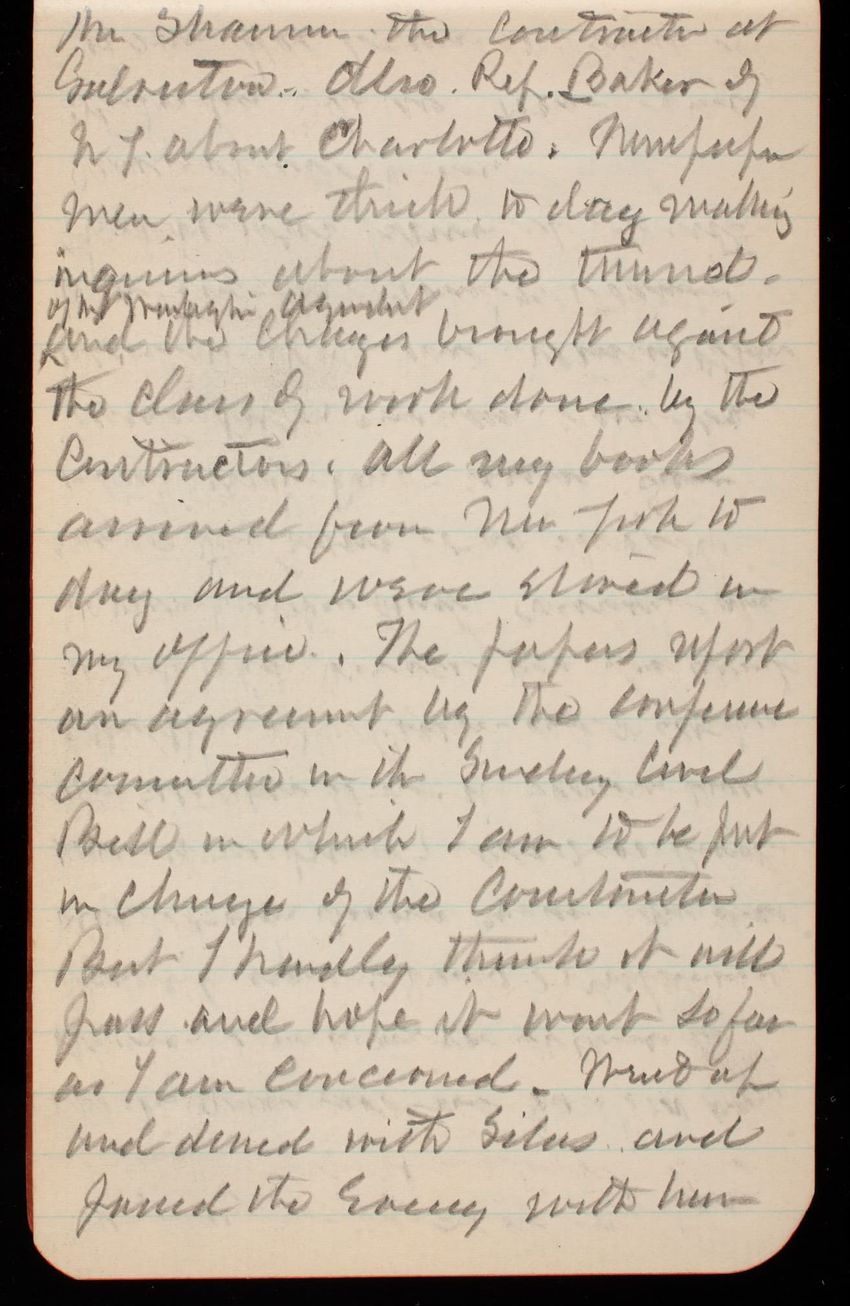 Mr Shannon the contractor at
Galveston. Also. Rep. Baker of
N Y. about Charlotte. Newspaper
men were thick to day making
inquiries about the tunnel.
of the Washington Aqueduct
and the charges brought against
the class of work done by the
Contractors. All my books
arrived from New York to
day and were stored in
my office. The papers report
an agreement by the conference
committee in the Sundry Civil
Bill in which I am to be put
in charge of the Construction
But I hardly think it will
pass and hope it wont so far
as I am concerned. Went up
and dined with Silas and
passed the Evening with him